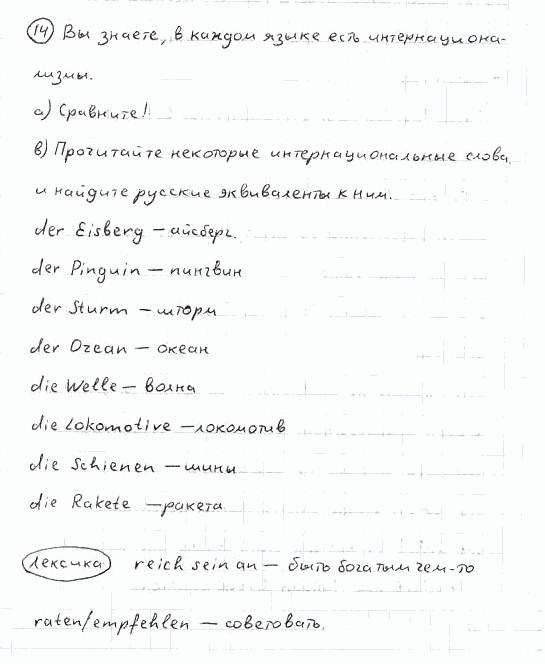 14 Вы знаете, в каждом языке есть интернациона-
лизмы.
а) Сравните!
в) Прочитайте некоторые интернациональные слова
и найдите русские эквиваленты к ним.
der Eisberg – айсберг.
der Pinguin – пингвин
der Sturm – шторм
der Ozean – океан
die Welle – волна
die Lokomotive – локомотив
die Schienen – шины
die Rakete – ракета
Лексика reich sein an – быть богатым чем-то
raten/empfehlen – советовать.